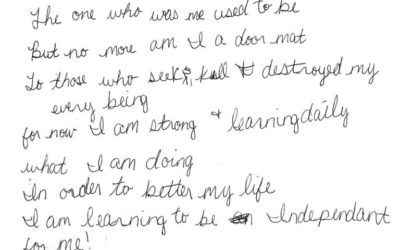 The one who was me used to be
But no more am I a door mat
To those who seek, kill & destroyed my
every being
for now I am strong & learning daily
what I am doing
In order to better my life
I am learning to be Independant
for me!